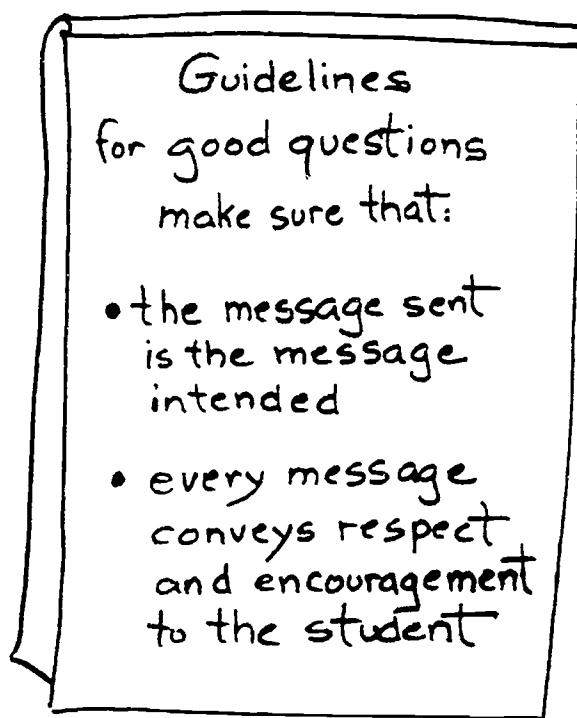 Guidelines
for good questions
make sure that:
• the message sent
is the message
intended
• every message
conveys respect
and encouragement
to the student